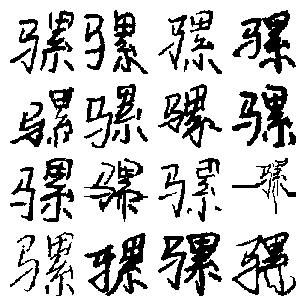 骡骡骡骡
骡骡骡骡
骡骡骡骡
骡骡骡骡